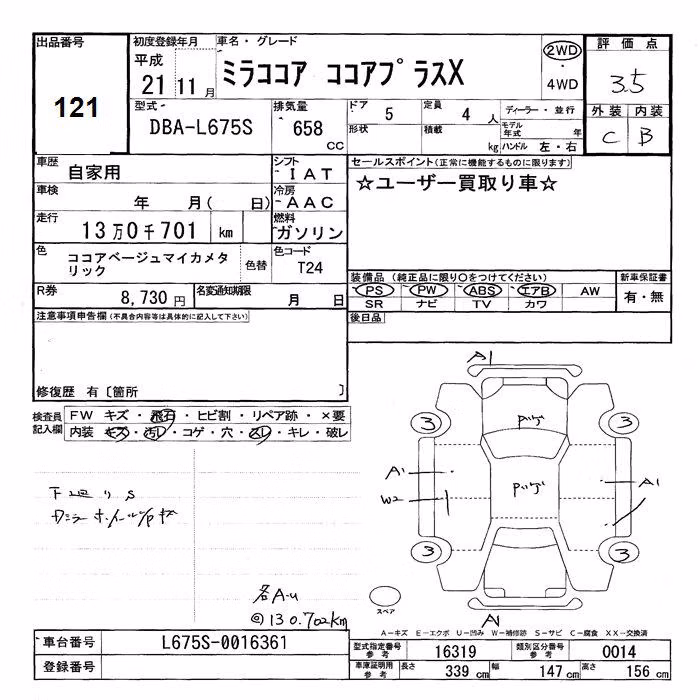 出品番号
121
初度登録年月
平成
21 11 月
車名・グレード
ミラココア ココアプラスX
2WD
・
4WD
評価点
3.5
外装 内装
C B
型式
DBA-L675S
排気量
658
CC
ドア
5
定員
4 人
形状
積載
kg
ディーラー・並行
モデル年式 年
ハンドル 左・右
車歴
自家用
シフト
IAT
車検
年 月( 日)
冷房
AAC
走行
13万0千701 km
燃料
ガソリン
色
ココアベージュマイカメタリック
色替
色コード
T24
R券
8,730 円
名変通知期限
月 日
セールスポイント(正常に機能するものに限ります)
☆ユーザー買取り車☆
装備品(純正品に限り○をつけてください)
PS PW ABS エアB AW
SR ナビ TV カワ
新車保証書
有・無
後日品
注意事項申告欄(不具合内容等は具体的に記入して下さい)
修復歴 有〔箇所 〕
検査員記入欄
FW キズ・飛石・ヒビ割・リペア跡・×要
内装 キズ・汚レ・コゲ・穴・スレ・キレ・破レ
下廻りS
各A-U
@130.702km
A1
3
3
A1
W2
A1
3
3
A1
スペア
A－キズ E－エクボ U－凹み W－補修跡 S－サビ C－腐食 XX－交換済
車台番号
L675S-0016361
登録番号
型式指定番号
参考
16319
類別区分番号
参考
0014
車庫証明用
参考
長さ 339 cm
幅 147 cm
高さ 156 cm